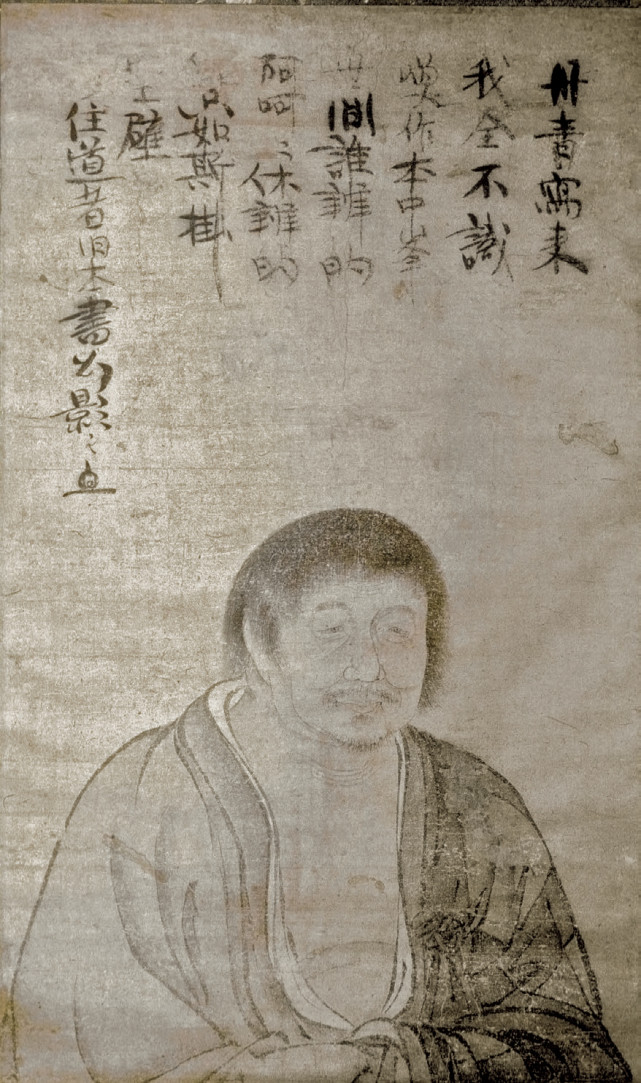 丹青寫来
我全不識
喚作本中峯
世間誰辨的
呵呵〻休辨的
只如斯掛
壁
住道者 本書幻影